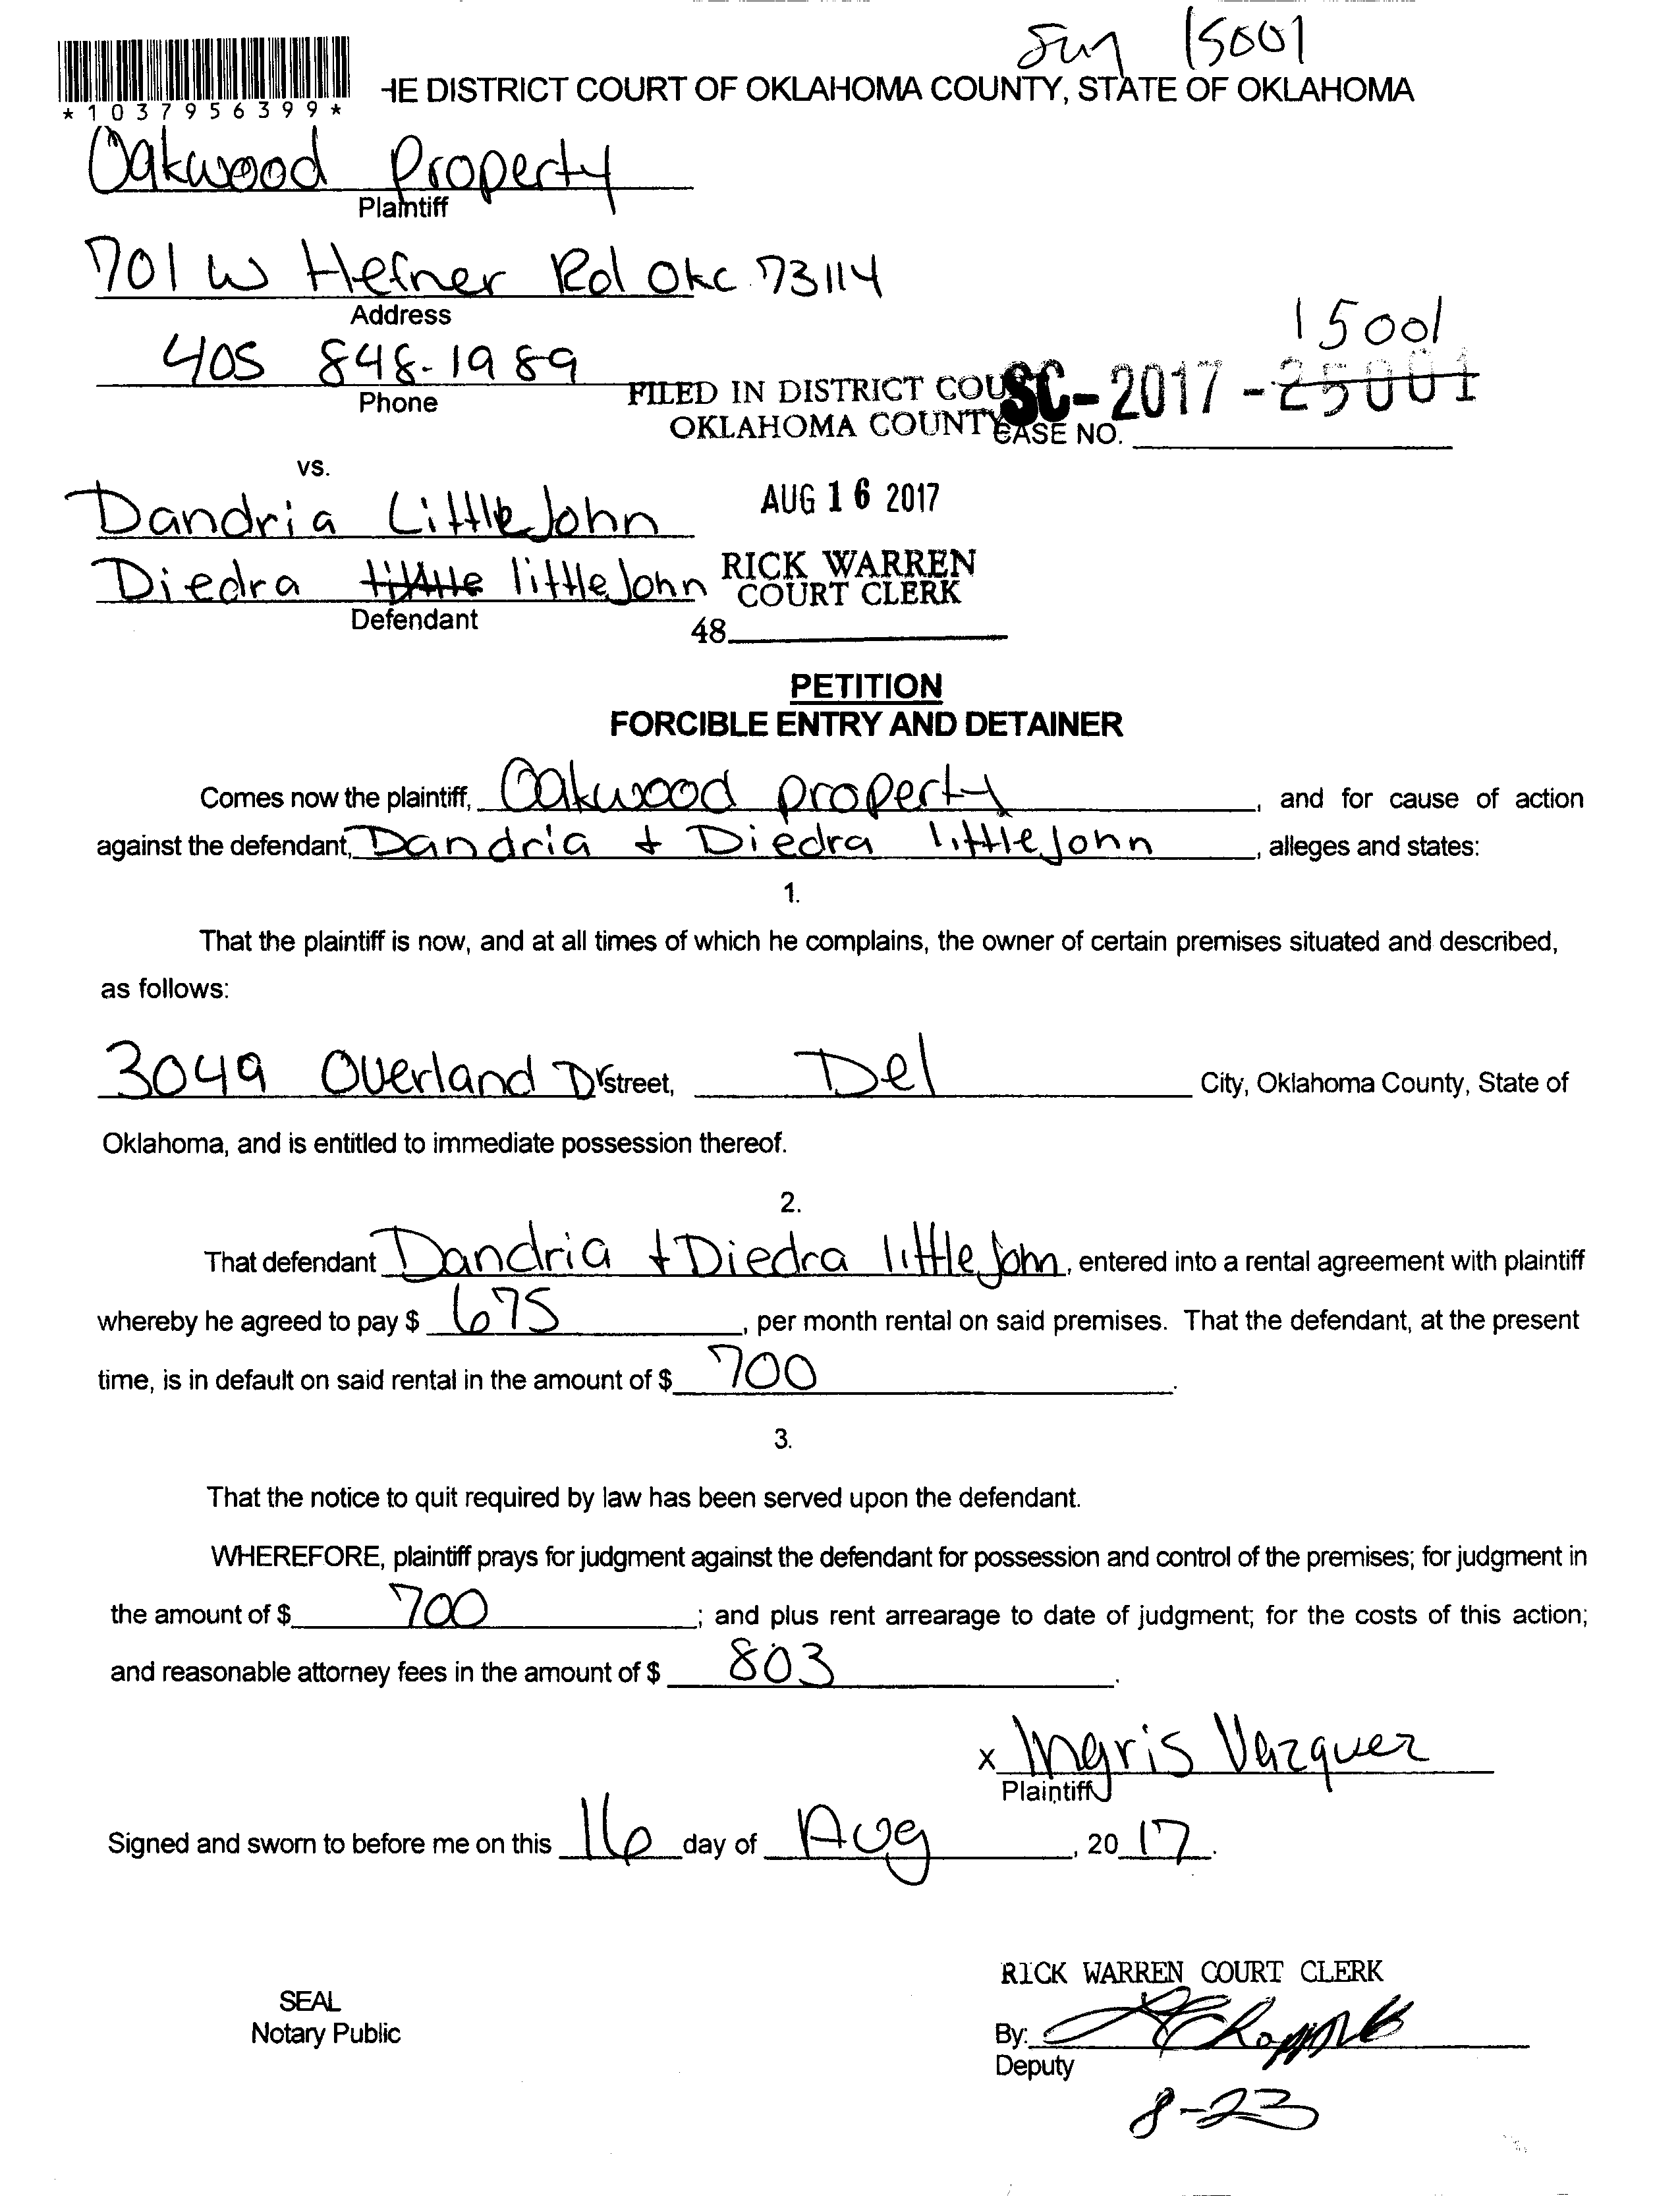 15001
*1037956399*
HE DISTRICT COURT OF OKLAHOMA COUNTY, STATE OF OKLAHOMA
Oakwood Property
Plaintiff
701 W Hefner Rd Okc 73114
Address
15001
405 848-1989
Phone
FILED IN DISTRICT COU SC-2017-25001
OKLAHOMA COUNTY CASE NO.
vs.
Dandria LittleJohn
AUG 16 2017
Diedra little littleJohn
RICK WARREN
COURT CLERK
Defendant
48
PETITION
FORCIBLE ENTRY AND DETAINER
Comes now the plaintiff, Oakwood property, and for cause of action
against the defendant, Dandria + Diedra littleJohn, alleges and states:
1.
That the plaintiff is now, and at all times of which he complains, the owner of certain premises situated and described,
as follows:
3049 Overland Dr street, Del City, Oklahoma County, State of
Oklahoma, and is entitled to immediate possession thereof.
2.
That defendant Dandria + Diedra little John, entered into a rental agreement with plaintiff
whereby he agreed to pay $ 675, per month rental on said premises. That the defendant, at the present
time, is in default on said rental in the amount of $ 700.
3.
That the notice to quit required by law has been served upon the defendant.
WHEREFORE, plaintiff prays for judgment against the defendant for possession and control of the premises; for judgment in
the amount of $ 700; and plus rent arrearage to date of judgment; for the costs of this action;
and reasonable attorney fees in the amount of $ 803.
x Ingris Vazquez
Plaintiff
Signed and sworn to before me on this 16 day of Aug, 2017.
RICK WARREN COURT CLERK
SEAL
Notary Public
By:
Deputy
8-23